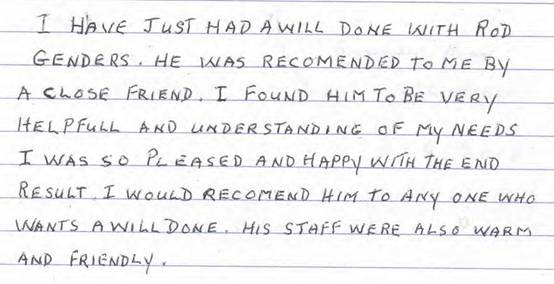 I HAVE JUST HAD A WILL DONE WITH ROD
GENDERS. HE WAS RECOMENDED TO ME BY
A CLOSE FRIEND. I FOUND HIM TO BE VERY
HELPFULL AND UNDERSTANDING OF MY NEEDS
I WAS SO PLEASED AND HAPPY WITH THE END
RESULT. I WOULD RECOMEND HIM TO ANY ONE WHO
WANTS A WILL DONE. HIS STAFF WERE ALSO WARM
AND FRIENDLY.